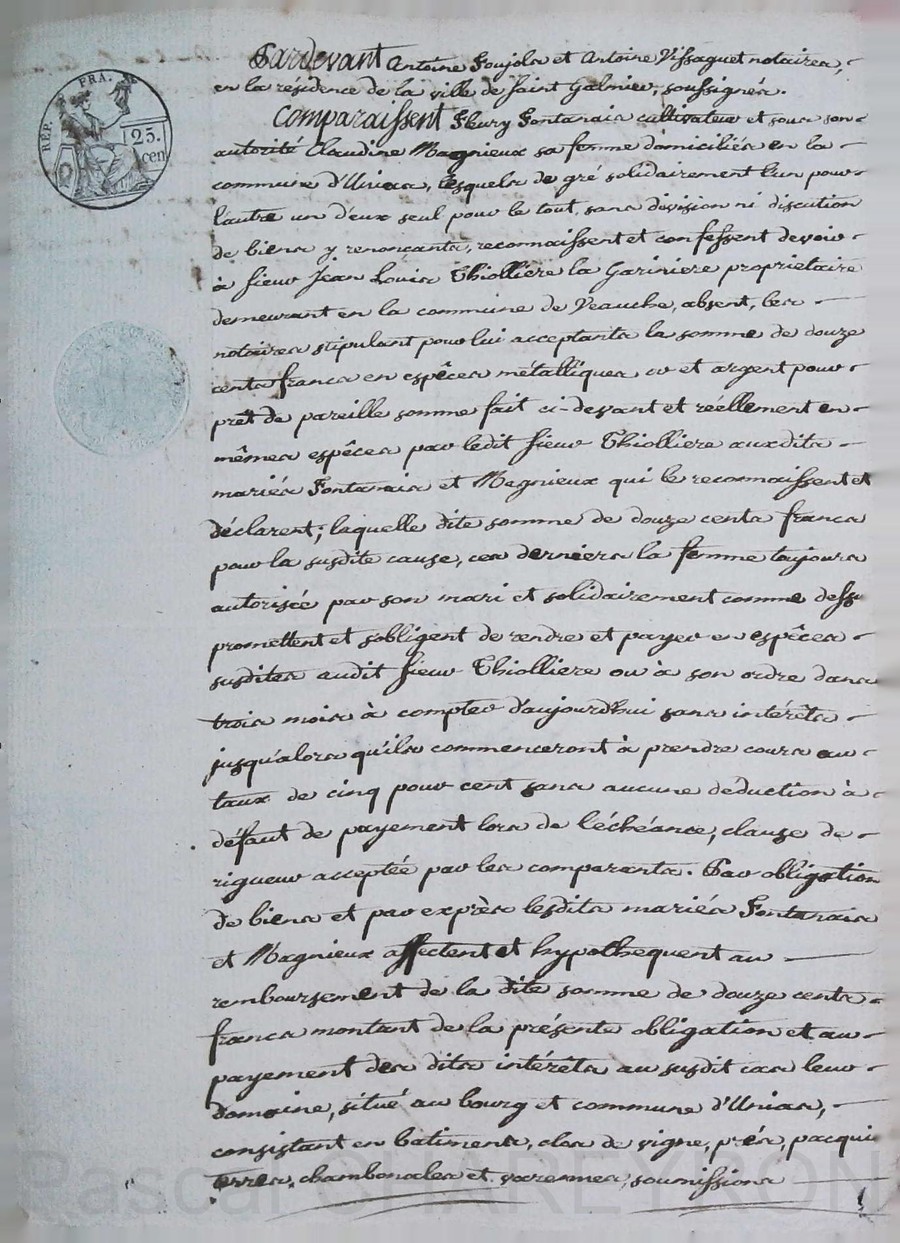 Pardevant Antoine Soujola et Antoine Vissaguet notaires,
en la résidence de la ville de Saint Galmier, soussignés.
Comparaissent Fleury Fontanais cultivateur et sous son
autorité Claudine Magnieux sa femme domiciliés en la
commune d'Unias, lesquels de gré solidairement l'un pour
l'autre un d'eux seul pour le tout, sans division ni discution
de biens y renonçants, reconnaissent et confessent devoir
à sieur Jean Louis Thiolliere la Gariniere propriétaire
demeurant en la commune de Veauche, absent, les
notaires stipulant pour lui acceptants la somme de douze
cents francs en espêces métalliques or et argent pour
prêt de pareille somme fait ci-devant et réellement en
mêmes espêces par ledit sieur Thiolliere auxdits
mariés Fontanais et Magnieux qui le reconnaissent et
déclarent; laquelle dite somme de douze cents francs
pour la susdite cause, ces derniers la femme toujours
autorisée par son mari et solidairement comme dessu
promettent et s'obligent de rendre et payer en espêces
susdites audit sieur Thiolliere ou à son ordre dans
trois mois à compter d'aujourd'hui sans intérêts
jusqu'alors qu'ils commenceront à prendre cours au
taux de cinq pour cent sans aucune déduction à
défaut de payement lors de l'échéance, clause de
rigueur acceptée par les comparants. Par obligation
de biens et par exprès lesdits mariés Fontanais
et Magnieux affectent et hypothequent au
remboursement de la dite somme de douze cents
francs montant de la présente obligation et au
payement des dits intérêts au susdit cas leur
domaine, situé au bourg et commune d'Unias,
consistant en batiments, clos de vigne, prés, pacquis
terres, chambonales et varennes, soumissions
REP. FRA.
25.
cen
Pascal CHAREYRON